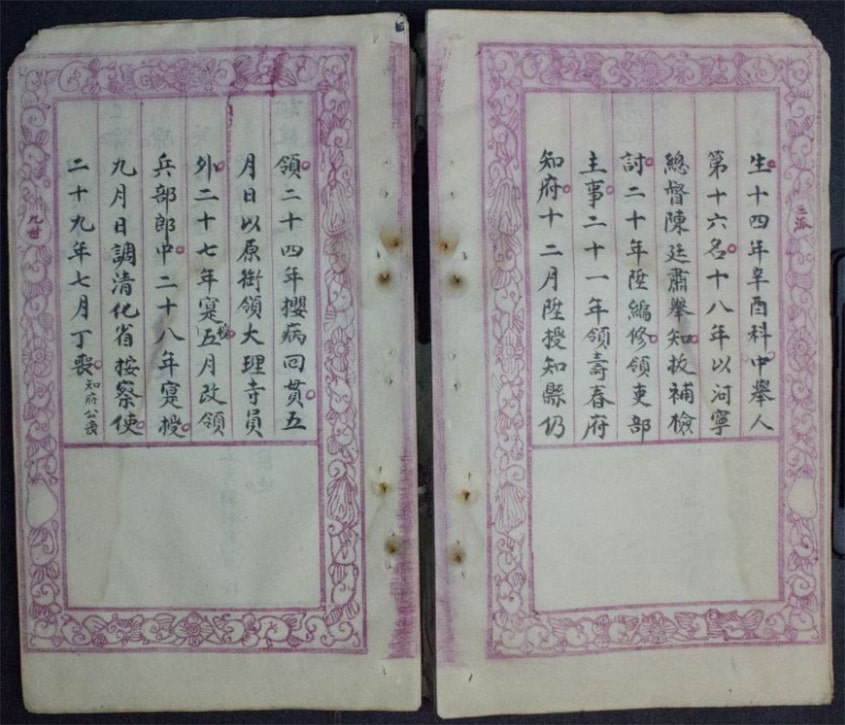 三派
生十四年辛酉科中舉人
第十六名十八年以河寧
總督陳廷肅舉知拔補檢
討二十年陞編修領吏部
主事二十一年領壽春府
知府十二月陞授知縣仍
領二十四年攖病回貫五
月日以原銜領大理寺員
外二十七年寔五月改領
兵部郎中二十八年寔授
九月日調清化省按察使
二十九年七月丁喪知府公喪
九世